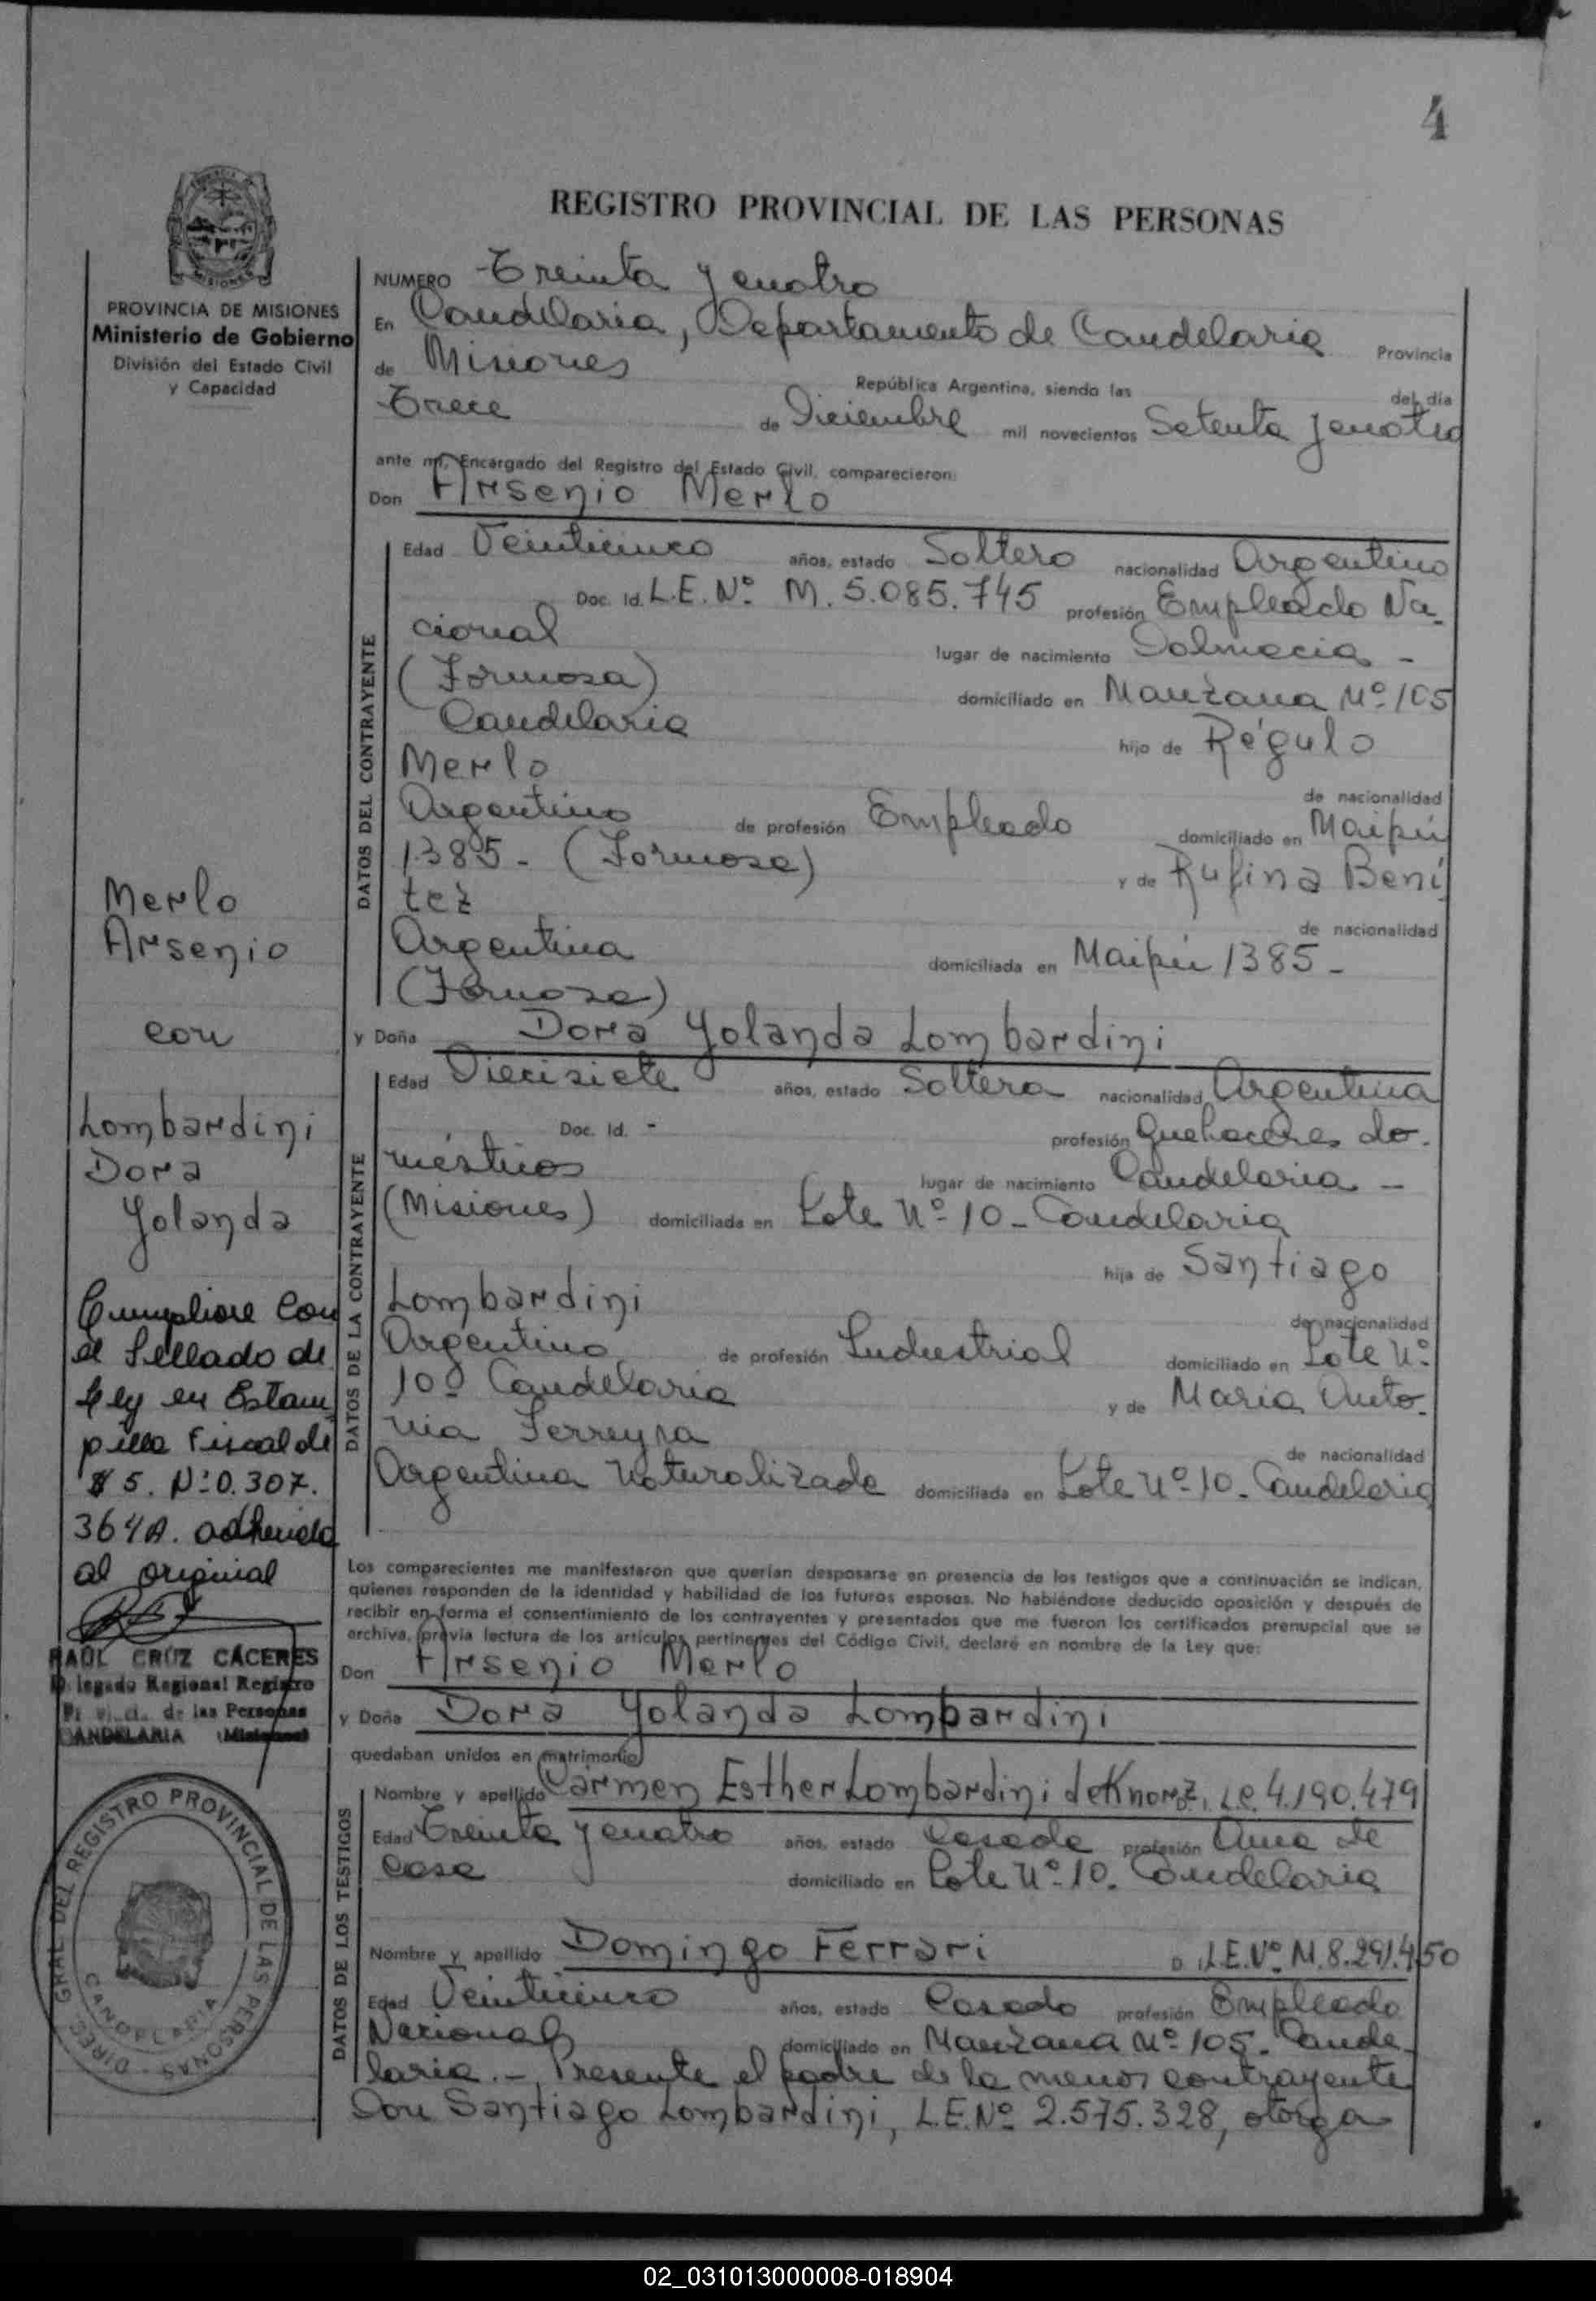 4
REGISTRO PROVINCIAL DE LAS PERSONAS
MISIONES
PROVINCIA DE MISIONES
Ministerio de Gobierno
División del Estado Civil
y Capacidad
NUMERO Treinta y cuatro
En Candelaria, Departamento de Candelaria Provincia
de Misiones República Argentina, siendo las del día
Trece de Diciembre mil novecientos Setenta y cuatro
ante mí, Encargado del Registro del Estado Civil, comparecieron:
Don Arsenio Merlo
DATOS DEL CONTRAYENTE
Edad Veinticinco años, estado Soltero nacionalidad Argentino
Doc. Id. L.E. Nº M. 5.085.745 profesión Empleado Na-
cional lugar de nacimiento Dalmacia -
(Formosa) domiciliado en Manzana Nº 105
Candelaria hijo de Régulo
Merlo de nacionalidad
Argentino de profesión Empleado domiciliado en Maipú
1385 - (Formosa) y de Rufina Bení
tez de nacionalidad
Argentina domiciliada en Maipú 1385 -
(Formosa)
y Doña Dora Yolanda Lombardini
DATOS DE LA CONTRAYENTE
Edad Diecisiete años, estado Soltera nacionalidad Argentina
Doc. Id. - profesión Quehaceres do-
mésticos lugar de nacimiento Candelaria -
(Misiones) domiciliada en Lote Nº 10 - Candelaria
hija de Santiago
Lombardini de nacionalidad
Argentino de profesión Industrial domiciliado en Lote Nº
10 - Candelaria y de Maria Anto-
nia Ferreyra de nacionalidad
Argentina Naturalizada domiciliada en Lote Nº 10 - Candelaria
Los comparecientes me manifestaron que querían desposarse en presencia de los testigos que a continuación se indican,
quienes responden de la identidad y habilidad de los futuros esposos. No habiéndose deducido oposición y después de
recibir en forma el consentimiento de los contrayentes y presentados que me fueron los certificados prenupcial que se
archiva, previa lectura de los artículos pertinentes del Código Civil, declaré en nombre de la Ley que:
Don Arsenio Merlo
y Doña Dora Yolanda Lombardini
quedaban unidos en matrimonio
DATOS DE LOS TESTIGOS
Nombre y apellido Carmen Esther Lombardini de Knorz, L.C. 4.190.479
Edad Treinta y cuatro años, estado Casada profesión Ama de
casa domiciliado en Lote Nº 10. Candelaria
Nombre y apellido Domingo Ferrari D. L.E. Nº M. 8.291.450
Edad Veinticinco años, estado Casado profesión Empleado
Nacional domiciliado en Manzana Nº 105. Cande-
laria. - Presente el padre de la menor contrayente
Don Santiago Lombardini, L.E. Nº 2.575.328, otorga
Merlo
Arsenio
con
Lombardini
Dora
Yolanda
Cumpliose con
el Sellado de
Ley en Estam
pilla Fiscal de
$ 5. Nº 0.307.
364A. adherida
al original
RAUL CRUZ CÁCERES
Delegado Regional Registro
Provincial de las Personas
CANDELARIA (Misiones)
DIREC. GRAL DEL REGISTRO PROVINCIAL DE LAS PERSONAS
CANDELARIA
02_031013000008-018904